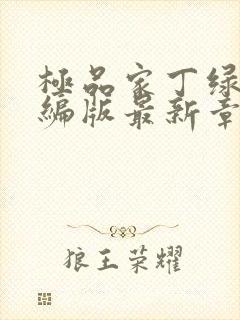 極品家丁绿
编版最新章
狼王荣耀